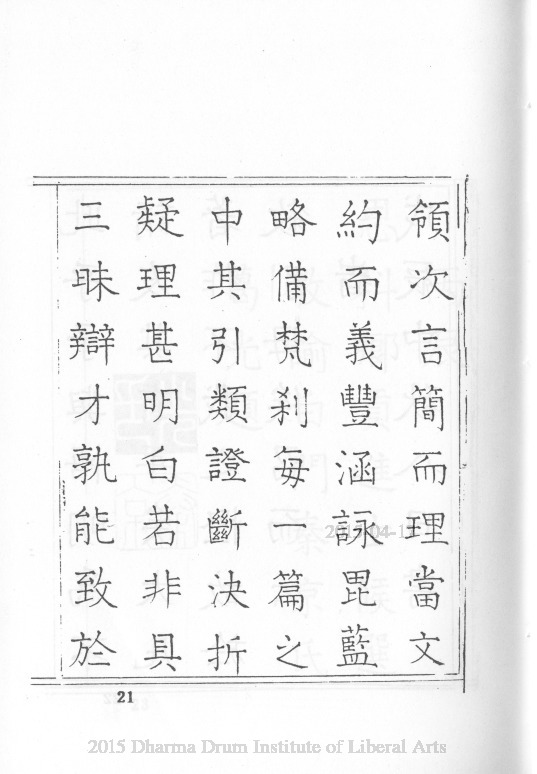 領次言簡而理當文
約而義豐涵詠毘藍
略備梵刹每一篇之
中其引類證斷決折
疑理甚明白若非具
三昧辯才孰能致於
21
2015-04-1
2015 Dharma Drum Institute of Liberal Arts